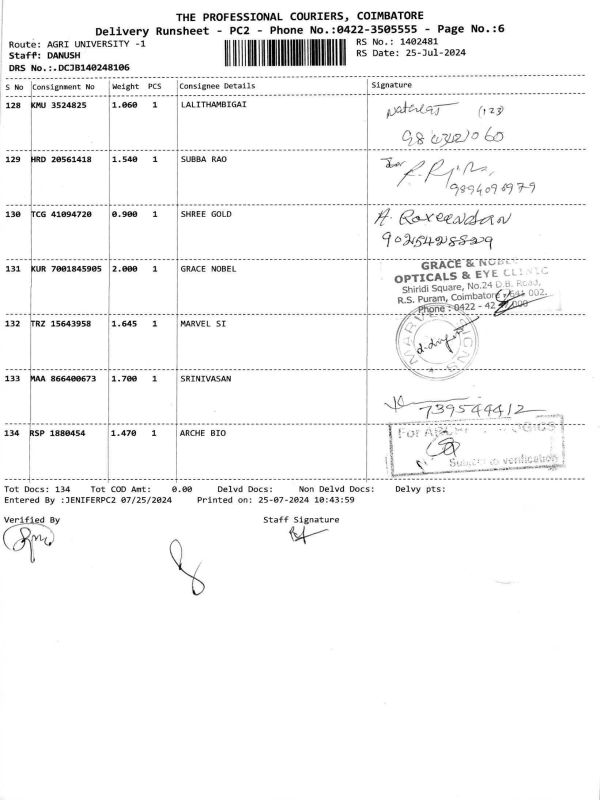 THE PROFESSIONAL COURIERS, COIMBATORE
Delivery Runsheet - PC2 - Phone No.:0422-3505555 - Page No.:6
Route: AGRI UNIVERSITY -1
RS No.: 1402481
Staff: DANUSH
RS Date: 25-Jul-2024
DRS No.:.DCJB140248106
S No Consignment No Weight PCS Consignee Details Signature
128 KMU 3524825 1.060 1 LALITHAMBIGAI
(123)
129 HRD 20561418 1.540 1 SUBBA RAO
9894090979
130 TCG 41094720 0.900 1 SHREE GOLD
A.
9025428829
131 KUR 7001845905 2.000 1 GRACE NOBEL
GRACE & NOBEL
OPTICALS & EYE CLINIC
Shiridi Square, No.24 D.B. Road,
R.S. Puram, Coimbatore - 641 002.
Phone : 0422 - 42
132 TRZ 15643958 1.645 1 MARVEL SI
MARVEL SIGNS
133 MAA 866400673 1.700 1 SRINIVASAN
7395444412
134 RSP 1880454 1.470 1 ARCHE BIO
For
Subject to verification
Tot Docs: 134 Tot COD Amt: 0.00 Delvd Docs: Non Delvd Docs: Delvy pts:
Entered By :JENIFERPC2 07/25/2024 Printed on: 25-07-2024 10:43:59
Verified By Staff Signature